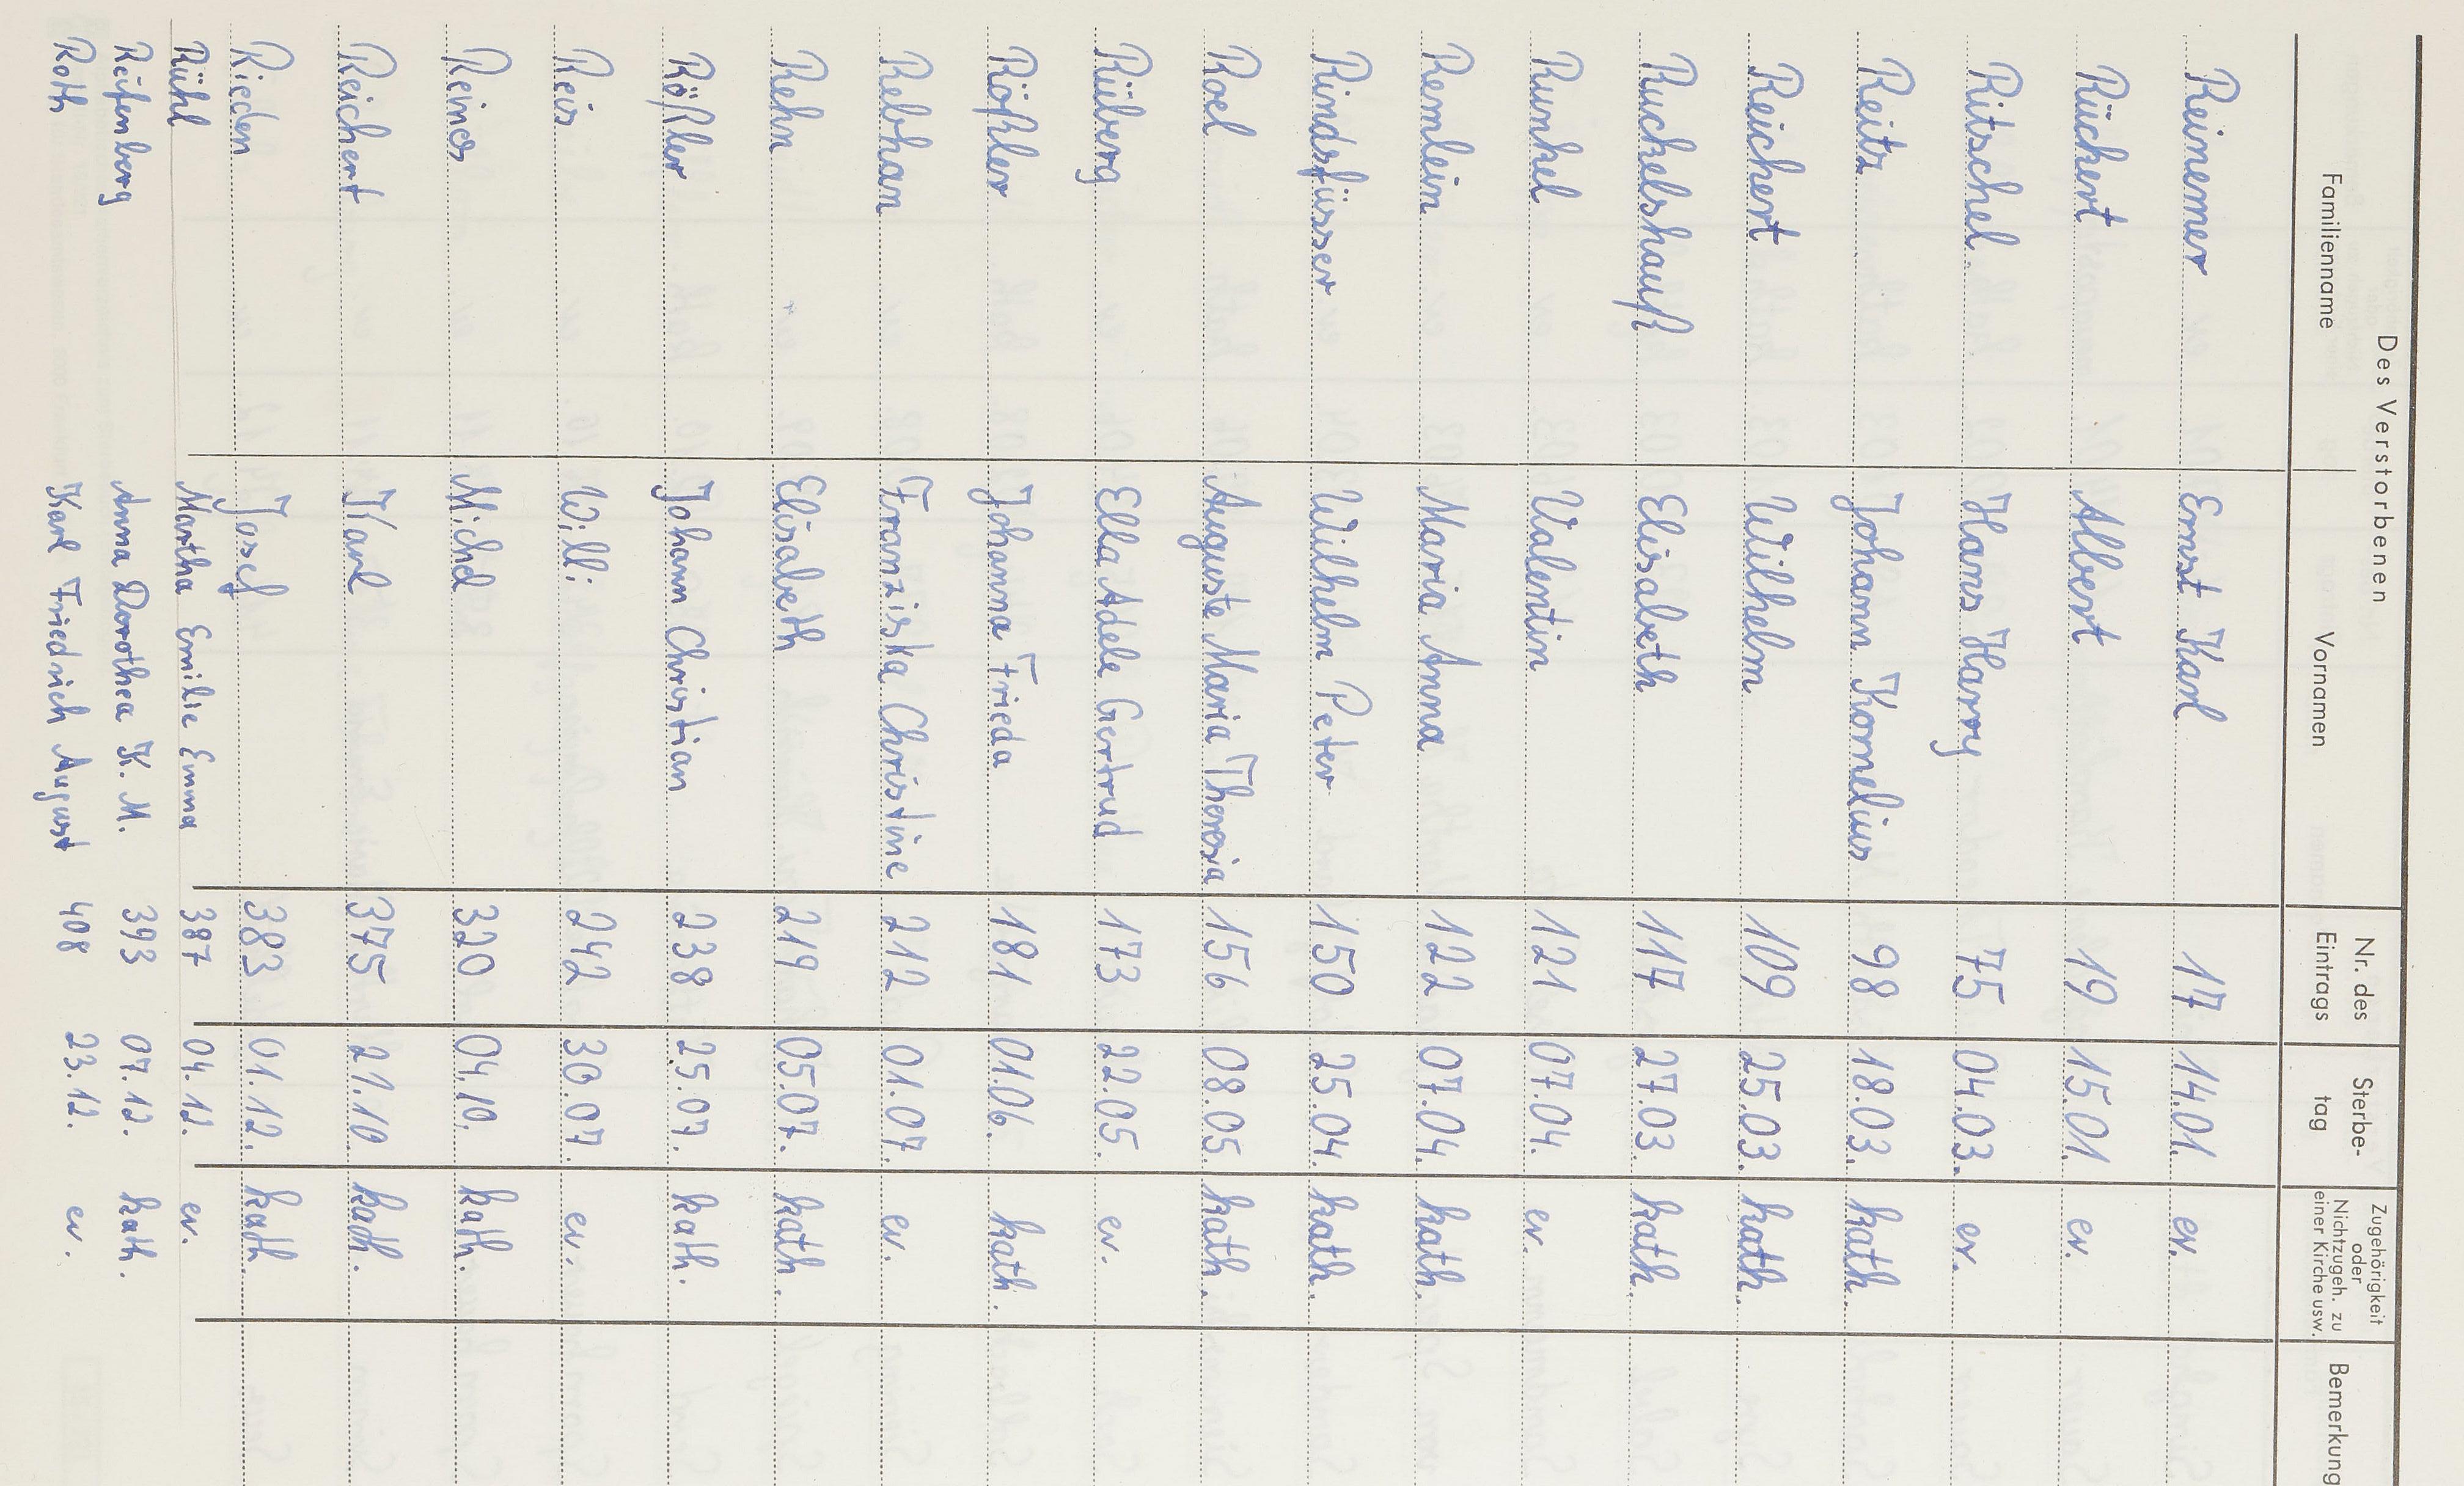 Des Verstorbenen
Familienname Vornamen Nr. des Eintrags Sterbe- tag Zugehörigkeit oder Nichtzugeh. zu einer Kirche usw. Bemerkung
Reinemer Ernst Karl 17 14.01. ev.
Rückert Albert 19 15.01 ev.
Ritschel Hans Harry 75 04.03. ev.
Reitz Johann Kornelius 98 18.03. kath.
Reichert Wilhelm 109 25.03. kath.
Ruckelshauß Elisabeth 117 27.03 kath.
Runkel Valentin 121 07.04. ev.
Remlein Maria Anna 122 07.04. kath.
Rindsfüsser Wilhelm Peter 150 25.04. kath.
Roel Auguste Maria Theresia 156 08.05. kath.
Rüberg Ella Adele Gertrud 173 22.05. ev.
Rößler Johanna Frieda 181 01.06. kath.
Rebhan Franziska Christine 212 01.07. ev.
Rehn Elisabeth 219 05.07. kath.
Rößler Johann Christian 238 25.07. kath.
Reis Willi 242 30.07. ev.
Reines 320 04.10. kath.
Reichert Karl 375 21.10 kath.
Rieden Josef 383 01.12. kath.
Rühl Martha Emilie Emma 387 04.12. ev.
Reifenberg Anna Dorothea K. M. 393 07.12. kath.
Roth Karl Friedrich August 408 23.12. ev.